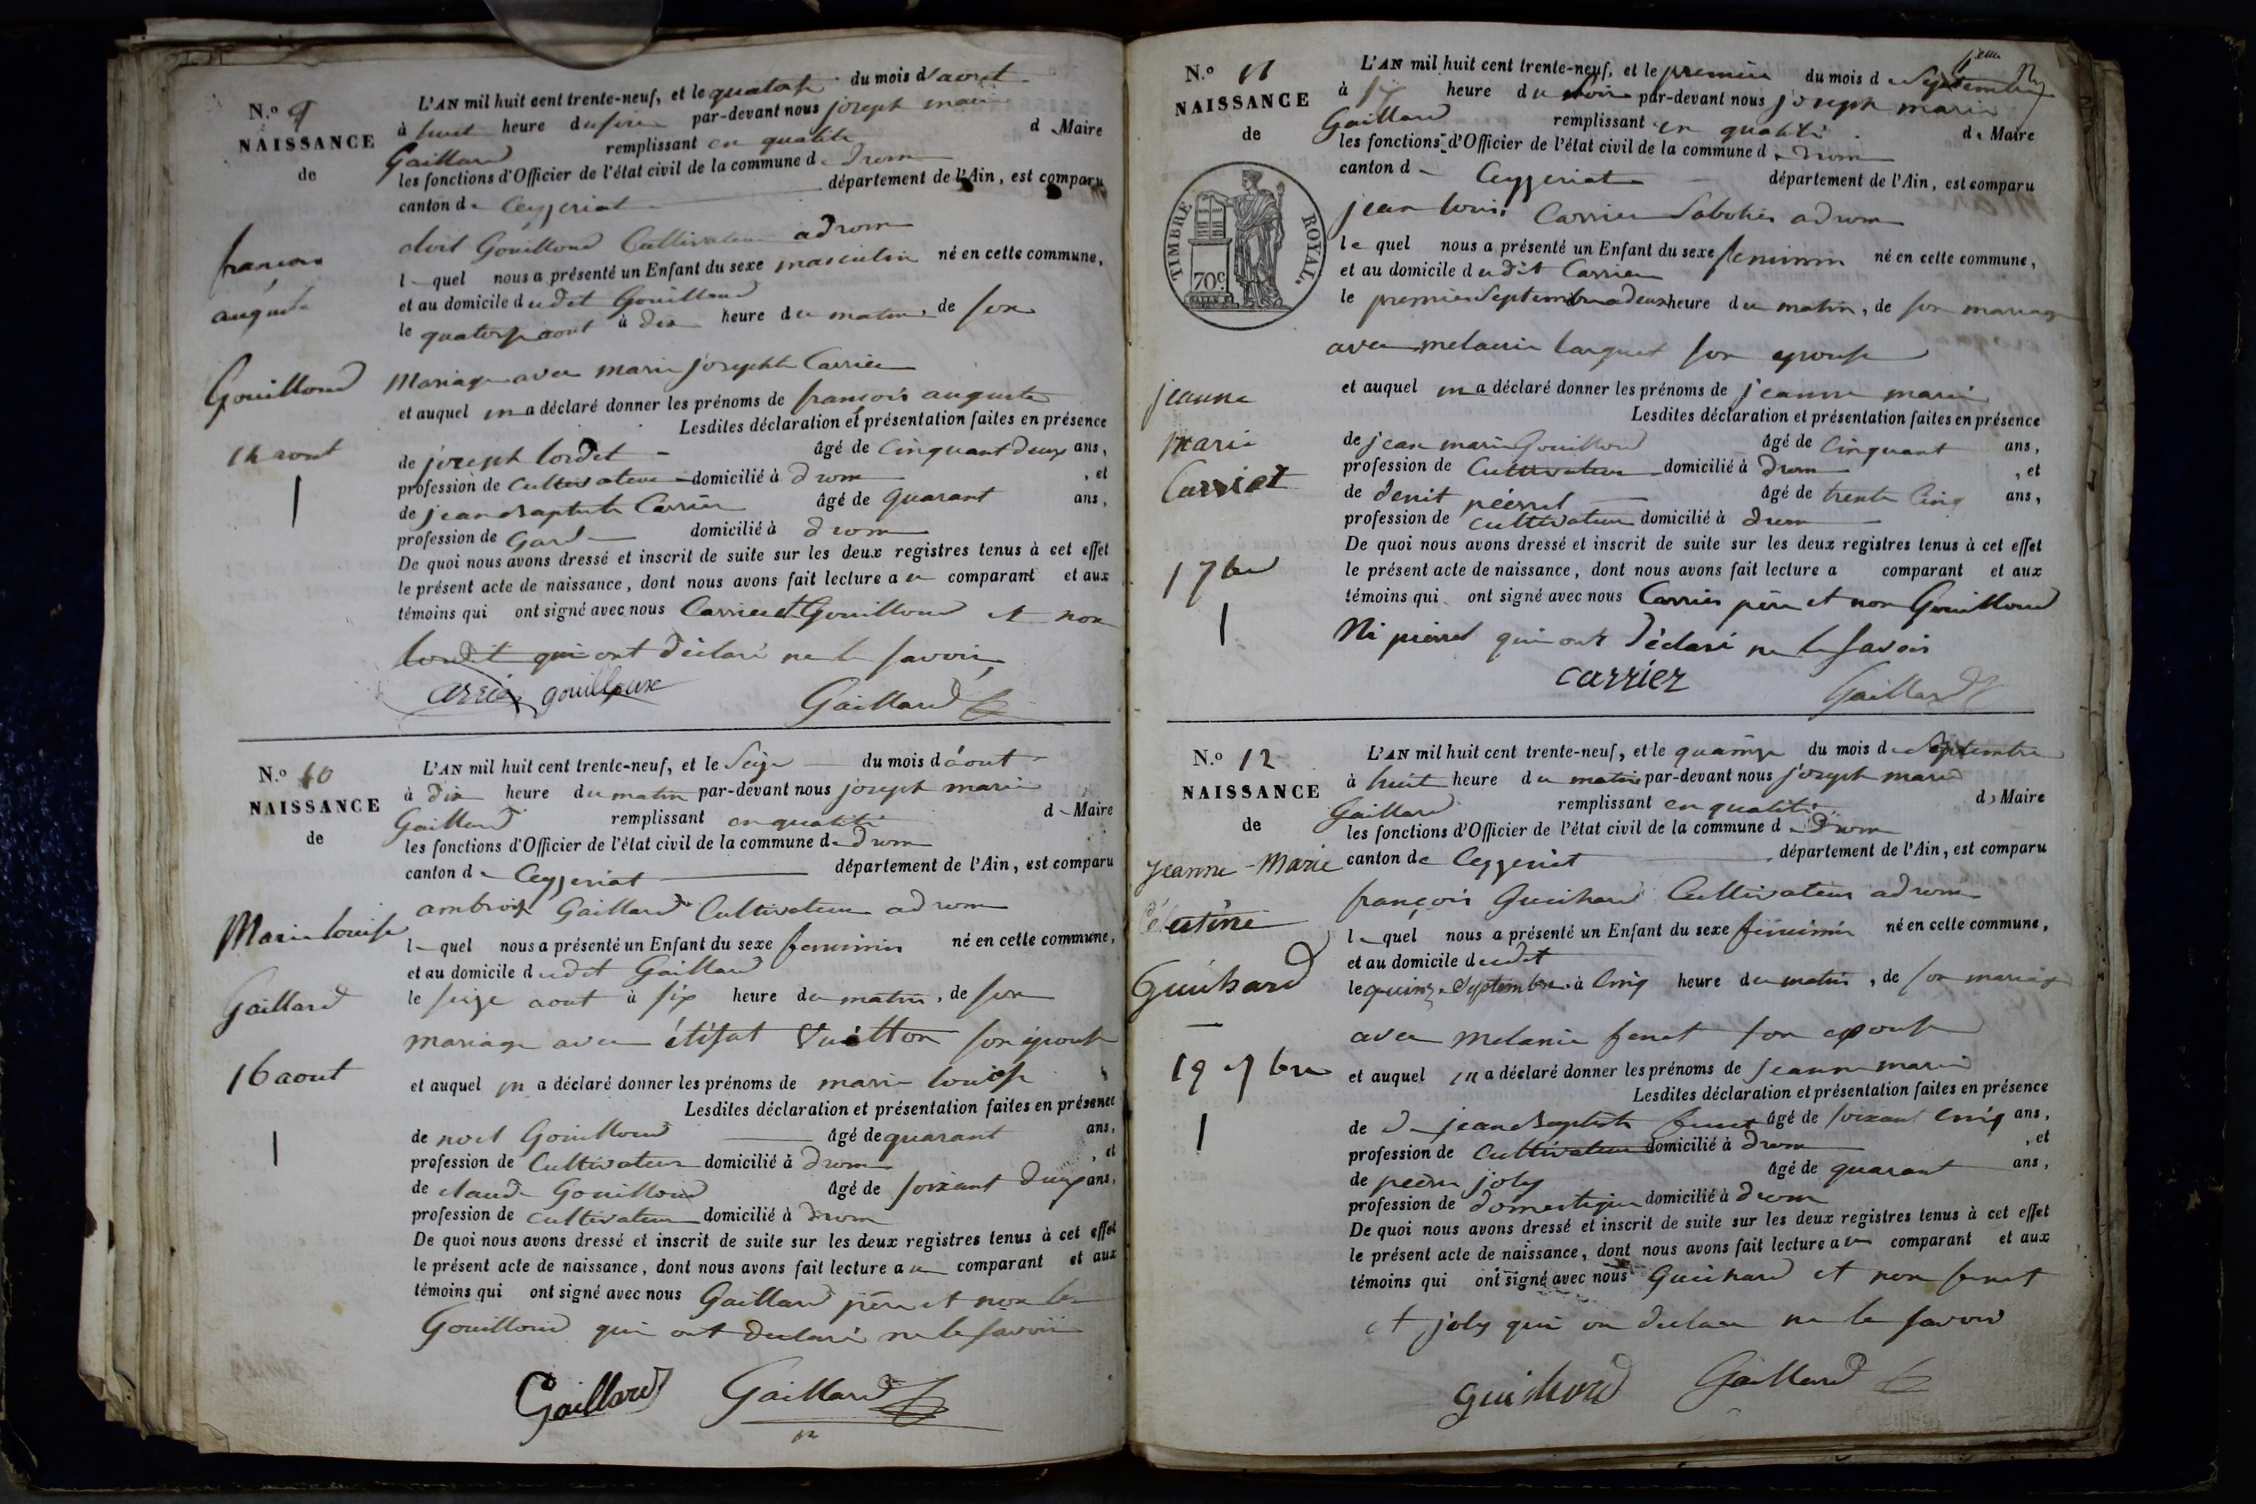 N.º 9
NAISSANCE
de
françois
auguste
Gouilloud
14 aout
1
L'AN mil huit cent trente-neuf, et le quatorse du mois d'aout
à huit heure du soir par-devant nous joseph marie
Gaillard remplissant en qualité de Maire
les fonctions d'Officier de l'état civil de la commune de drom
canton de Ceyzeriat département de l'Ain, est comparu
Gouilloud Cultivateur a drom
le quel nous a présenté un Enfant du sexe masculin né en cette commune,
et au domicile dudit Gouilloud
le quatorse aout à dix heure du matin, de son
Mariage avec marie josephte Carrier
et auquel il a déclaré donner les prénoms de françois auguste
Lesdites déclaration et présentation faites en présence
de joseph lordet âgé de Cinquant deux ans,
profession de Cultivateur domicilié à drom, et
de jean Baptiste Carrier âgé de quarant ans,
profession de Gard domicilié à drom
De quoi nous avons dressé et inscrit de suite sur les deux registres tenus à cet effet
le présent acte de naissance, dont nous avons fait lecture au comparant et aux
témoins qui ont signé avec nous Carrier et Gouilloud et non
lordet qui ont déclaré ne le savoir
carrier gouilloux Gaillard
N.º 10
NAISSANCE
de
Marie louise
Gaillard
16 aout
1
L'AN mil huit cent trente-neuf, et le Seize du mois d'aout
à dix heure du matin par-devant nous joseph marie
Gaillard remplissant en qualité de Maire
les fonctions d'Officier de l'état civil de la commune de drom
canton de Ceyzeriat département de l'Ain, est comparu
ambroise Gaillard Cultivateur a drom
le quel nous a présenté un Enfant du sexe feminin né en cette commune,
et au domicile dudit Gaillard
le seize aout à six heure du matin, de son
mariage avec Vuitton son epouse
et auquel il a déclaré donner les prénoms de marie louise
Lesdites déclaration et présentation faites en présence
de noel Gouilloud âgé de quarant ans,
profession de Cultivateur domicilié à drom, et
de claude Gouilloud âgé de soixant deux ans,
profession de cultivateur domicilié à drom
De quoi nous avons dressé et inscrit de suite sur les deux registres tenus à cet effet
le présent acte de naissance, dont nous avons fait lecture au comparant et aux
témoins qui ont signé avec nous Gaillard père et non les
Gouilloud qui ont declaré ne le savoir
Gaillard Gaillard
N.º 11
NAISSANCE
de
TIMBRE ROYAL.
70c
jeanne
marie
Carrier
1 7bre
1
L'AN mil huit cent trente-neuf, et le premier du mois de Septembre
à six heure du soir par-devant nous joseph marie
Gaillard remplissant en qualité de Maire
les fonctions d'Officier de l'état civil de la commune de drom
canton de Ceyzeriat département de l'Ain, est comparu
jean louis Carrier Sabotier a drom
le quel nous a présenté un Enfant du sexe feminin né en cette commune,
et au domicile dudit Carrier
le premier Septembre a deux heure du matin, de son mariage
avec melanie son epouse
et auquel il a déclaré donner les prénoms de jeanne marie
Lesdites déclaration et présentation faites en présence
de jean marie Gouilloud âgé de Cinquant ans,
profession de Cultivateur domicilié à drom, et
de denit piérrel âgé de trente Cinq ans,
profession de cultivateur domicilié à drom
De quoi nous avons dressé et inscrit de suite sur les deux registres tenus à cet effet
le présent acte de naissance, dont nous avons fait lecture a comparant et aux
témoins qui ont signé avec nous Carrier père et non Gouilloud
Ni pierrel qui ont déclaré ne le savoir
carrier Gaillard
N.º 12
NAISSANCE
de
Jeanne-Marie
Guichard
7bre
1
L'AN mil huit cent trente-neuf, et le du mois de Septembre
à huit heure du matin par-devant nous joseph marie
Gaillard remplissant en qualité de Maire
les fonctions d'Officier de l'état civil de la commune de drom
canton de Ceyzeriat département de l'Ain, est comparu
françois Guichard Cultivateur a drom
le quel nous a présenté un Enfant du sexe feminin né en cette commune,
et au domicile dudit
le quinze Septembre à Cinq heure du matin, de son mariage
avec Melanie fenet son epouse
et auquel il a déclaré donner les prénoms de Jeanne marie
Lesdites déclaration et présentation faites en présence
de jean Baptiste fenet âgé de soixant cinq ans,
profession de Cultivateur domicilié à drom, et
de pierre joly âgé de quarant ans,
profession de domestique domicilié à drom
De quoi nous avons dressé et inscrit de suite sur les deux registres tenus à cet effet
le présent acte de naissance, dont nous avons fait lecture au comparant et aux
témoins qui ont signé avec nous Guichard et non fenet
et joly qui on declare ne le savoir
guichard Gaillard